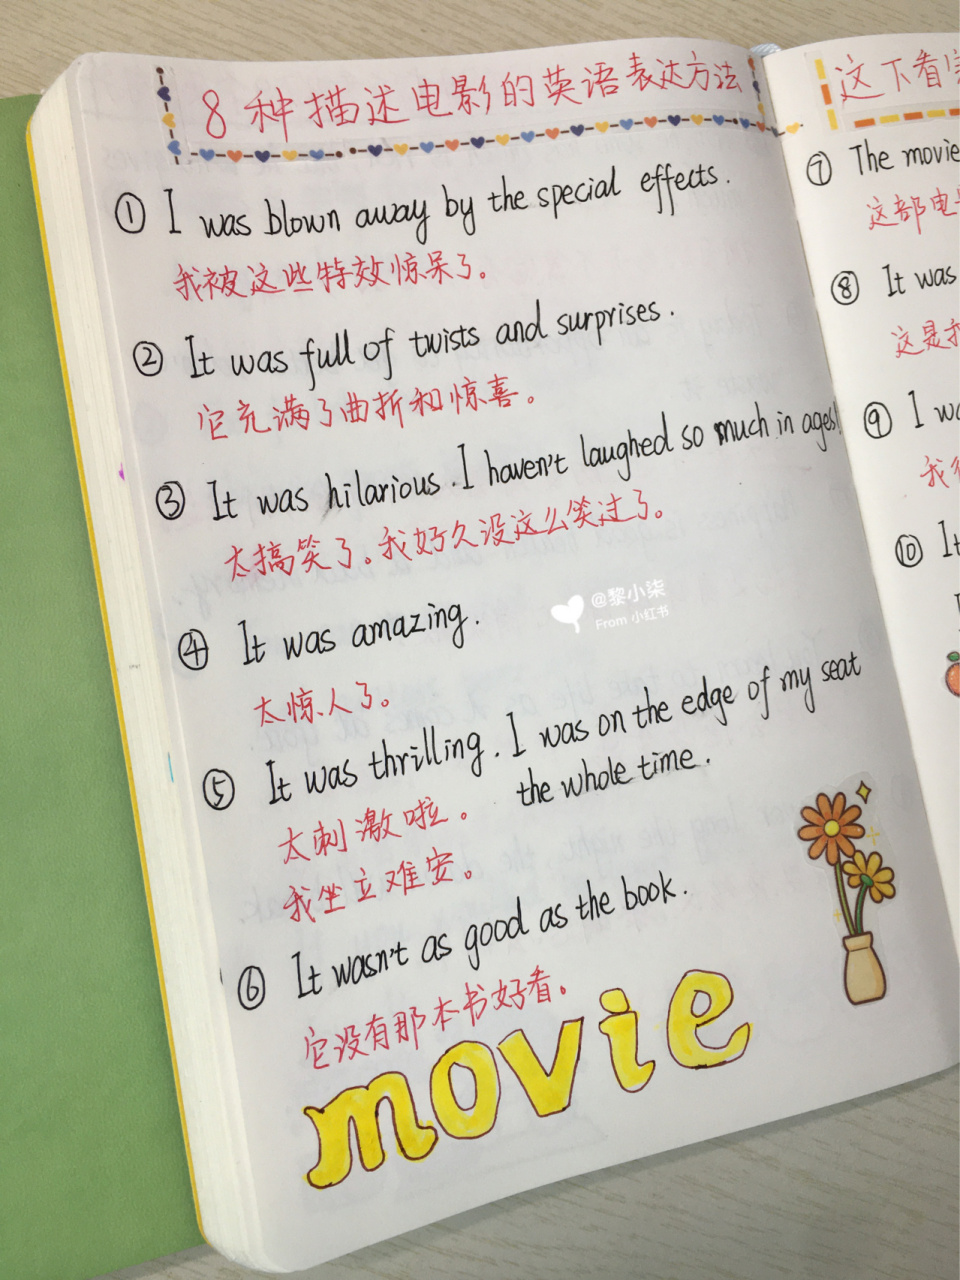 8种描述电影的英语表达方法
① I was blown away by the special effects.
我被这些特效惊呆了。
② It was full of twists and surprises.
它充满了曲折和惊喜。
③ It was hilarious. I haven't laughed so much in ages!
太搞笑了。我好久没这么笑过了。
④ It was amazing.
太惊人了。
⑤ It was thrilling. I was on the edge of my seat
the whole time.
太刺激啦。
我坐立难安。
⑥ It wasn't as good as the book.
它没有那本书好看。
movie
@黎小柒
From 小红书
这下看
⑦ The movie
这部电
⑧ It was
这是
⑨ I
我
⑩ It